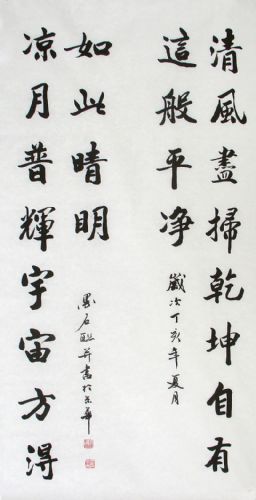 清風盡掃乾坤自有
這般平净
歲次丁亥年夏月
凉月普輝宇宙方得
如此晴明
石并書於京華